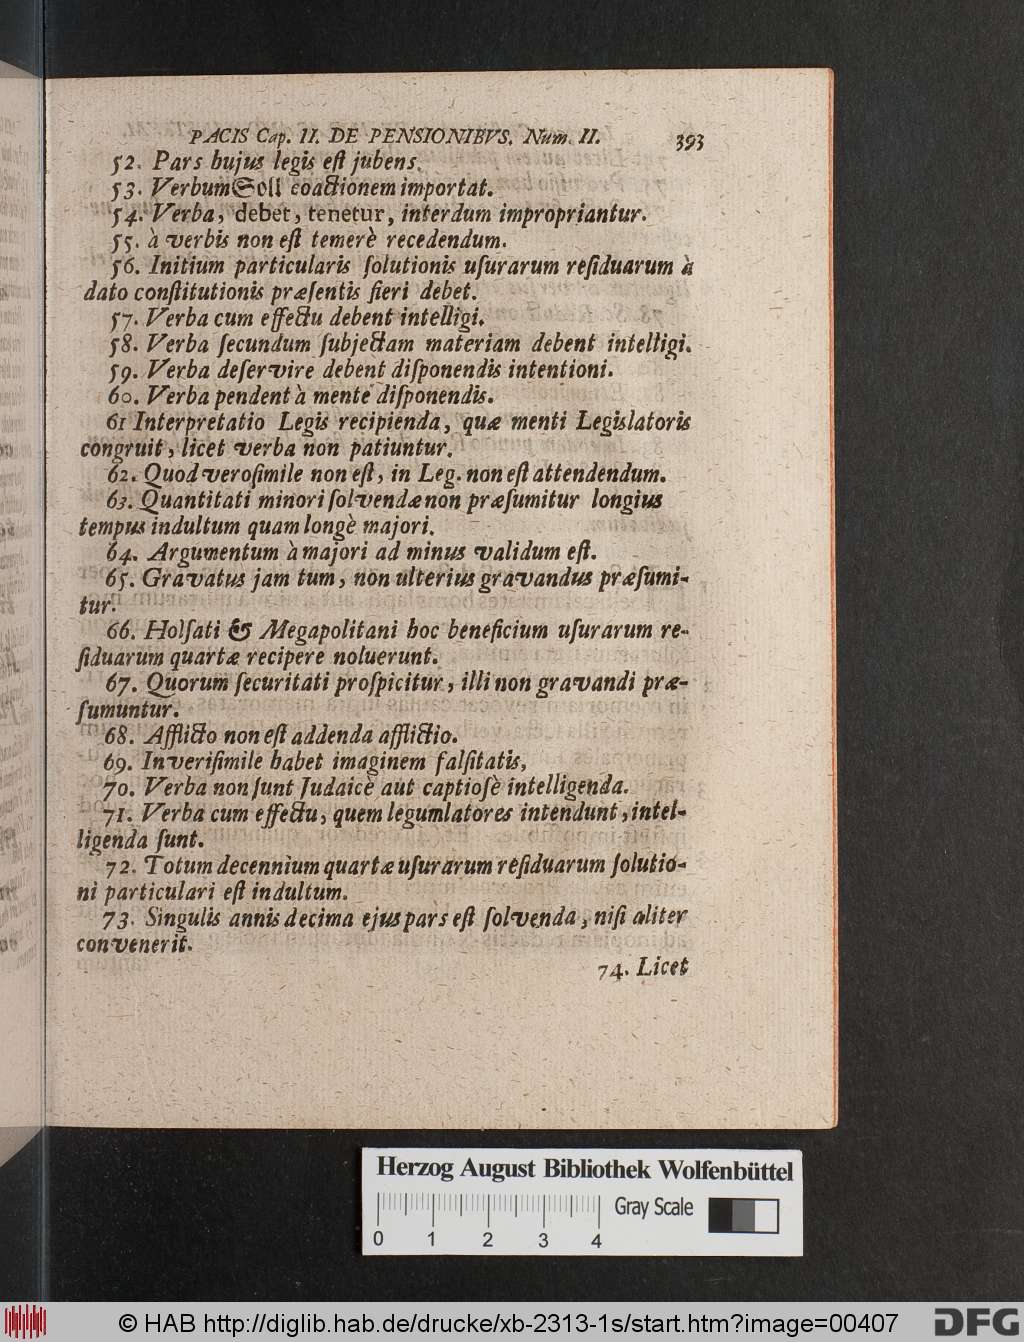 PACIS Cap. II. DE PENSIONIBVS. Num. II. 393
52. Pars hujus legis eſt jubens.
53. Verbum Soll coactionem importat.
54. Verba, debet, tenetur, interdum impropriantur.
55. à verbis non eſt temerè recedendum.
56. Initium particularis ſolutionis uſurarum reſiduarum à
dato conſtitutionis præſentis fieri debet.
57. Verba cum effectu debent intelligi.
58. Verba ſecundum ſubjectam materiam debent intelligi.
59. Verba deſervire debent diſponendis intentioni.
60. Verba pendent à mente diſponendis.
61 Interpretatio Legis recipienda, quæ menti Legislatoris
congruit, licet verba non patiuntur.
62. Quod veroſimile non eſt, in Leg. non eſt attendendum.
63. Quantitati minori ſolvendæ non præſumitur longius
tempus indultum quam longè majori.
64. Argumentum à majori ad minus validum eſt.
65. Gravatus jam tum, non ulterius gravandus præſumi-
tur.
66. Holſati & Megapolitani hoc beneficium uſurarum re-
ſiduarum quartæ recipere noluerunt.
67. Quorum ſecuritati proſpicitur, illi non gravandi præ-
ſumuntur.
68. Afflicto non eſt addenda afflictio.
69. Inveriſimile habet imaginem falſitatis,
70. Verba non ſunt Judaicè aut captioſè intelligenda.
71. Verba cum effectu, quem legumlatores intendunt, intel-
ligenda ſunt.
72. Totum decennium quartæ uſurarum reſiduarum ſolutio-
ni particulari eſt indultum.
73. Singulis annis decima ejus pars eſt ſolvenda, niſi aliter
convenerit.
74. Licet
Herzog August Bibliothek Wolfenbüttel
Gray Scale
0 1 2 3 4
© HAB http://diglib.hab.de/drucke/xb-2313-1s/start.htm?image=00407
DFG